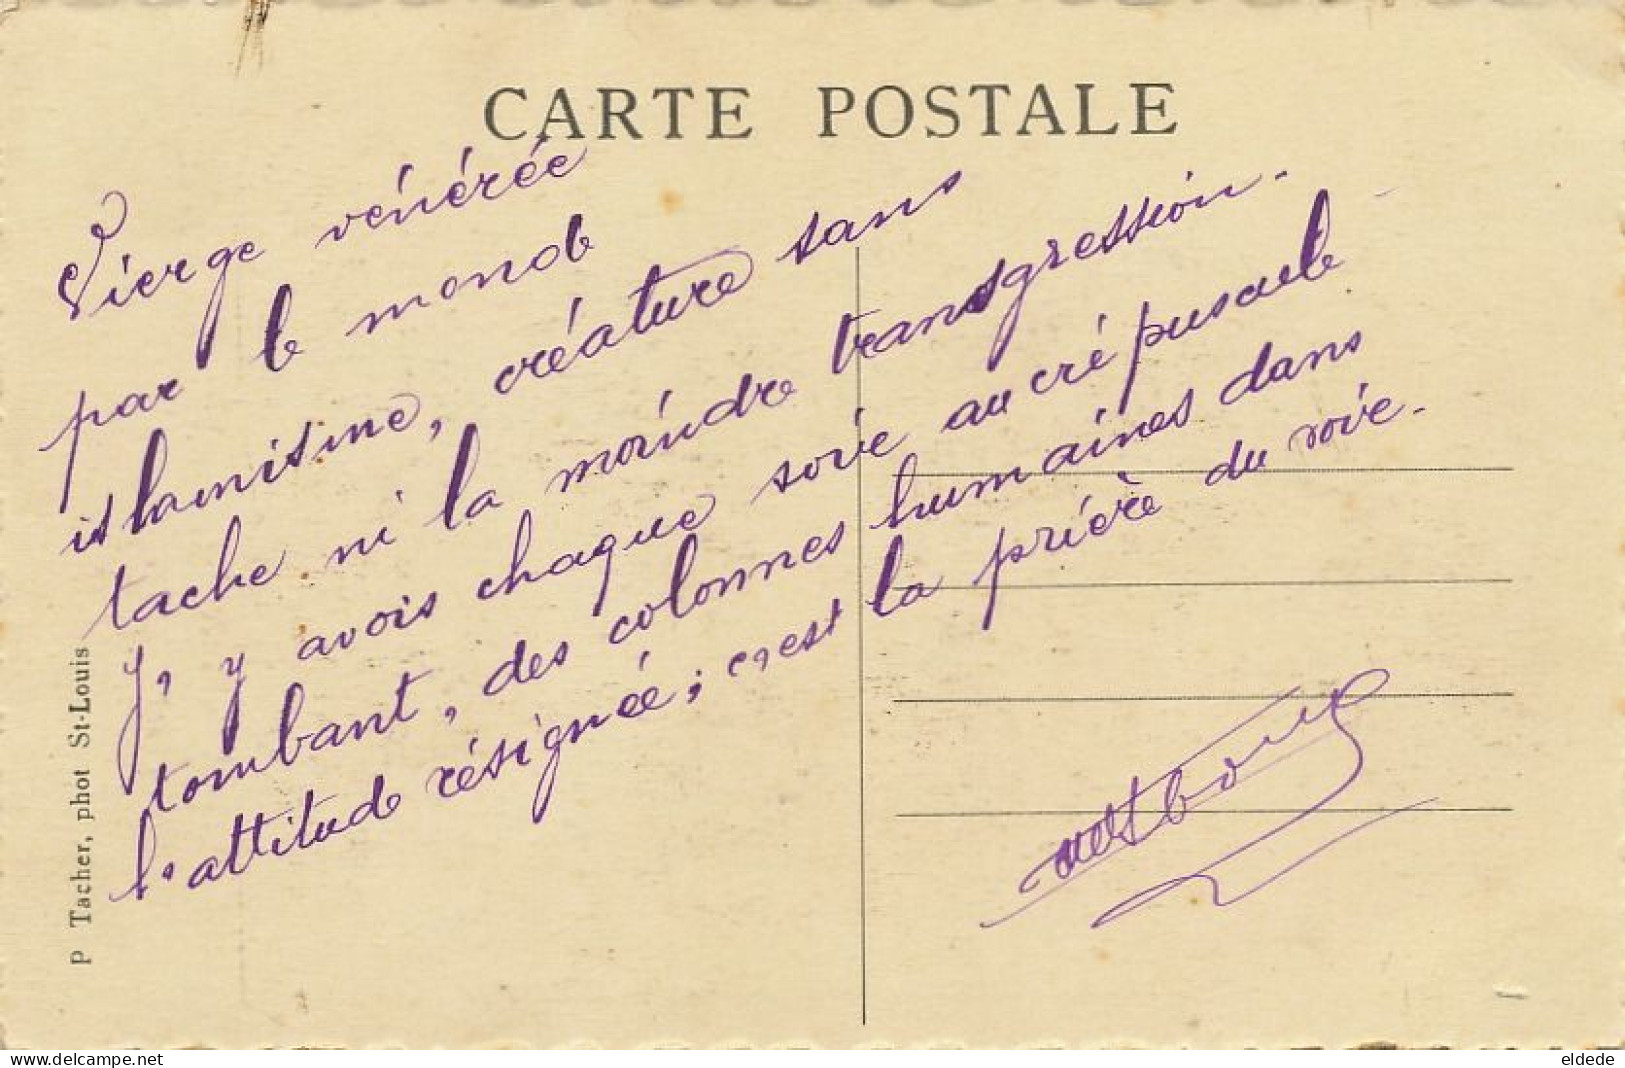 CARTE POSTALE
Vierge vénérée
par le monde
islamisme, créature sans
tache ni la moindre transgression.
J'y avois chaque soire au crépuscule
tombant, des colonnes humaines dans
l'attitude résignée; c'est la prière du soire.
P Tacher, phot St-Louis
www.delcampe.net
eldede